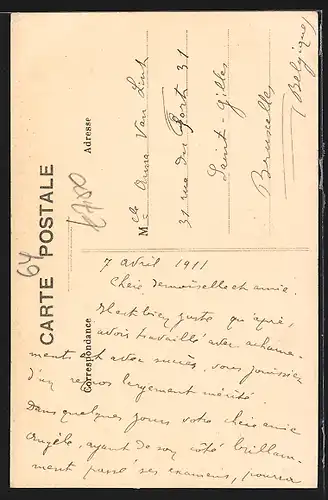 CARTE POSTALE
64
6700
Adresse
Mcle Anna Van Lint
31 rue du Fort 31
Saint-Gilles
Bruxelles
(Belgique)
Correspondance
7 avril 1911
Chère demoiselle et amie.
Il est bien juste qu'après,
avoir travaillé avec acharne-
ment et avec succès, vous jouissiez
d'un repos largement mérité.
Dans quelques jours votre chère amie
Angèle, ayant de son côté brillam-
ment passé ses examens, pourra